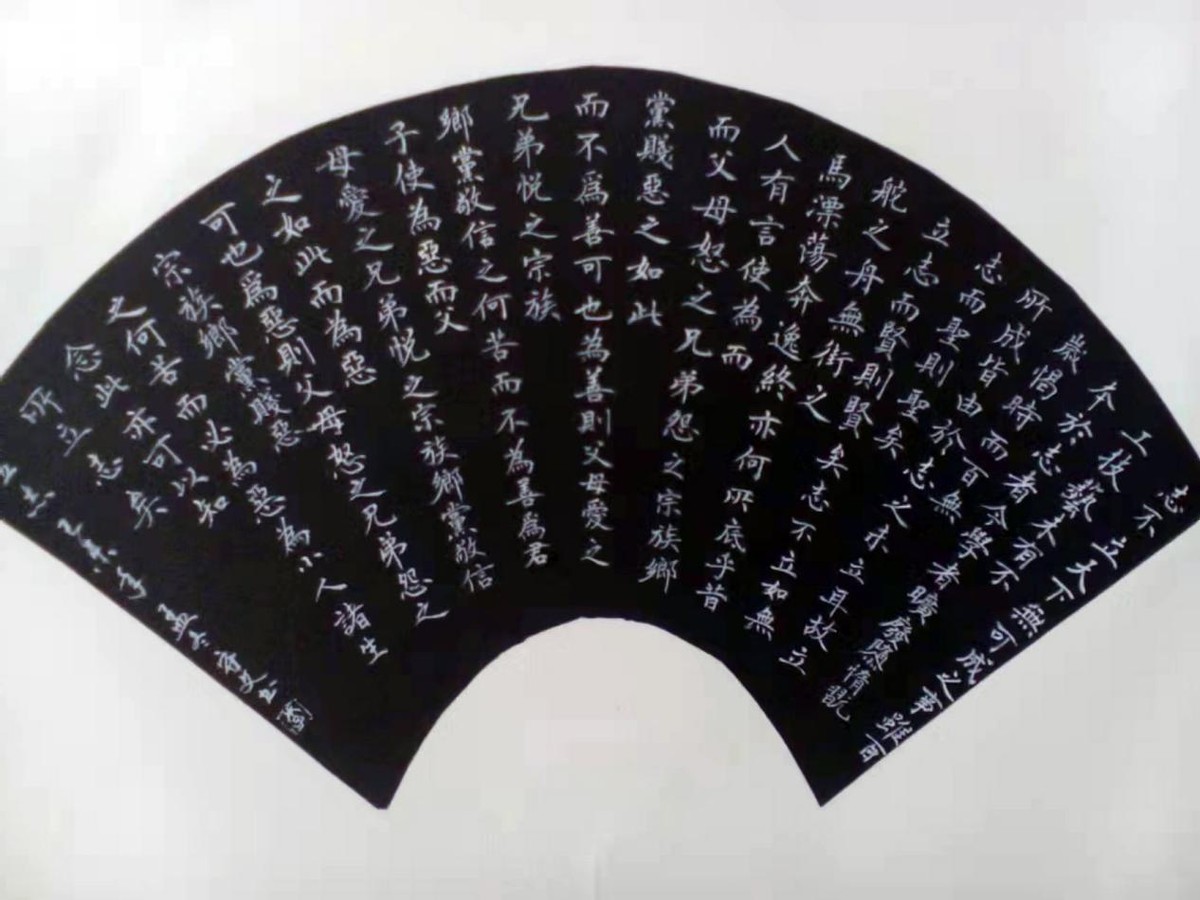 志不立天下無可成之事雖百
工技藝未有不
本於志者今學者曠廢隳惰翫
歲愒時而百無
所成皆由於志之未立耳故立
志而聖則聖矣
立志而賢則賢矣志不立如無
舵之舟無銜之
馬漂蕩奔逸終亦何所底乎昔
人有言使為而
而父母怒之兄弟怨之宗族鄉
黨賤惡之如此
而不爲善可也為善則父母愛之
兄弟悅之宗族
鄉黨敬信之何苦而不為善爲君
子使為惡而父
母愛之兄弟悅之宗族鄉黨敬信
之如此而為惡
可也爲惡則父母怒之兄弟怨之
宗族鄉黨賤惡
之何苦而必為惡為小人諸生
念此亦可以知
所立志矣
立志 乙未年孟冬